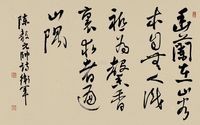 幽蘭在山谷
本自無人識
祗為馨香
重求者遍
山隅
陳毅元帥詩衛軍